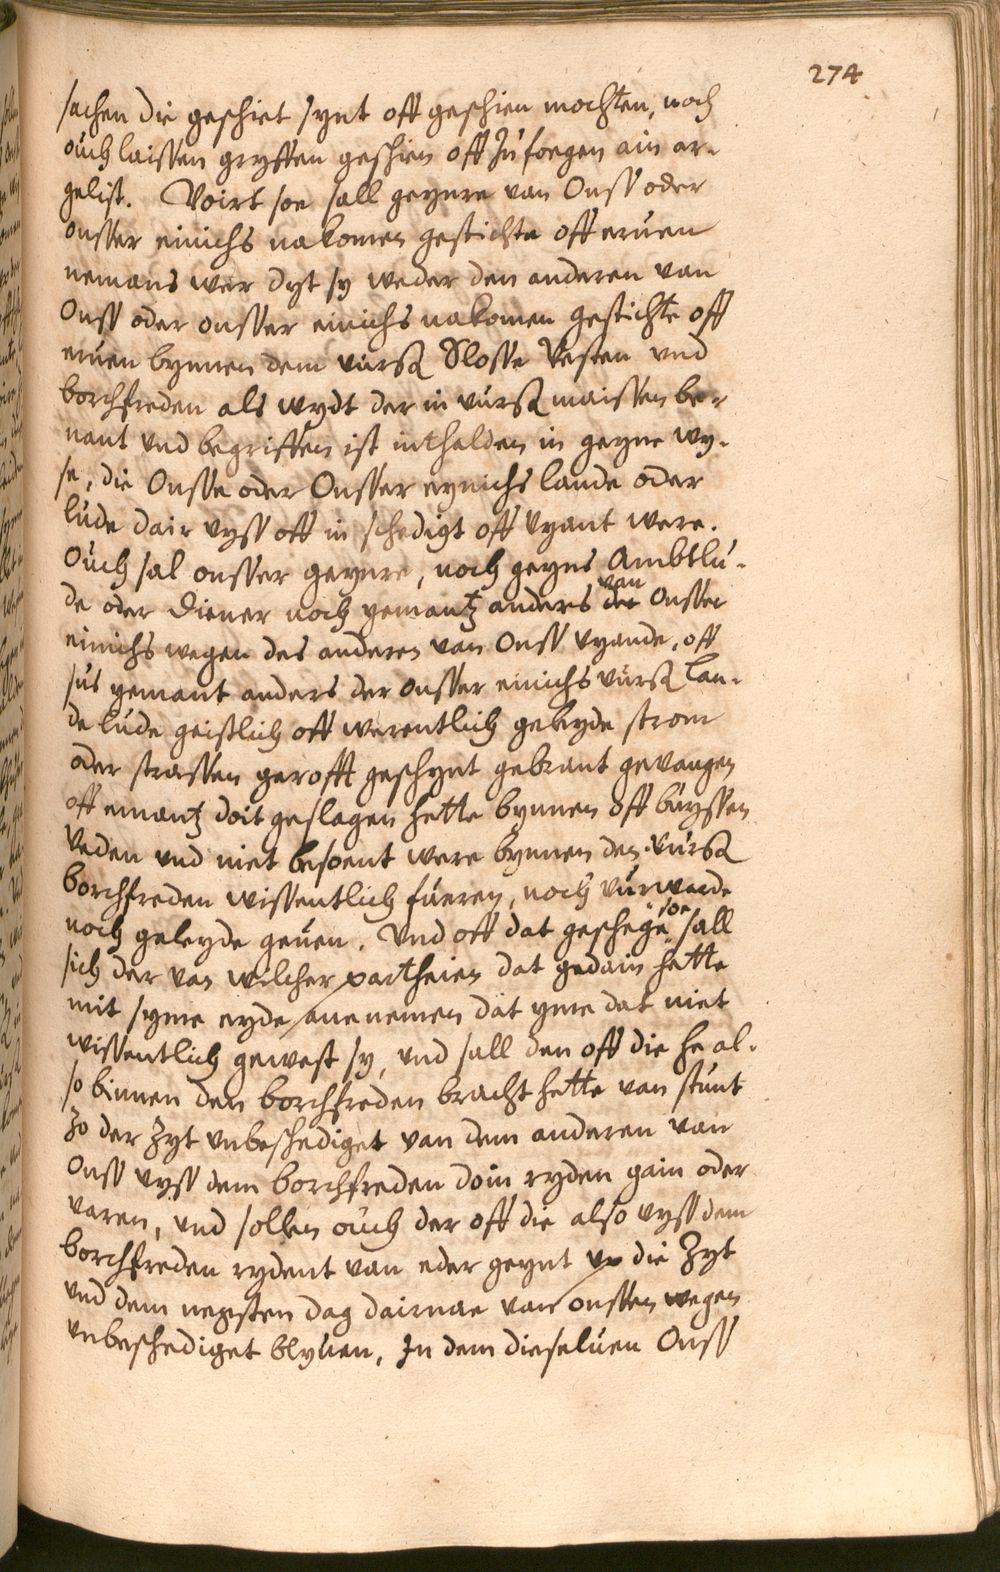 274
sachen die geschiet synt off geschien mochten, noch
ouch laissen gryffen geschien off zufoegen ain ar-
gelist. Voirt soe sall geynre van Onss oder
onsser einichs nakomen gestichte off eruen
nemans wer dyt sy weder den anderen van
Onss oder onsser einichs nakomen gestichte off
eruen bynnen dem vurss Slosse Vesten vnd
borchfreden als wydt der in vurss maissen be-
nant vnd begriffen ist inthalden in geyne wy-
se, die Onsse oder Onsser eynichs lande oder
lude dair vyss off in schedigt off vyant were.
Ouch sal onsser geynre, noch geyns Ambtlu-
de oder Diener noch yemantz anders van Onsser
einichs wegen des anderen van Onss vyande, off
sus yemant anders der onsser einichs vurss lan-
de lude geistlich off werentlich geleyde strom
oder strassen gerofft geschynt gebrant gevangen
off emantz doit geslagen hette bynnen off buyssen
veden vnd niet besoent were bynnen den vurss
borchfreden wissentlich fueren, noch vurwarde
noch geleyde geuen. Vnd off dat geschege soe sall
sich der van wilcher partheien dat gedain hette
mit syme eyde annemen dat yme dat niet
wissentlich gewest sy, vnd sall den off die he al-
so binnen den borchfreden bracht hette van stunt
zo der zyt vnbeschediget van dem anderen van
Onss vyss dem borchfreden doin ryden gain oder
varen, vnd sollen ouch der off die also vyss dem
borchfreden rydent van eder geynt vp die Zyt
vnd dem negsten dag dairnae van onssen wegen
vnbeschediget blyuen, In dem dieseluen Onss